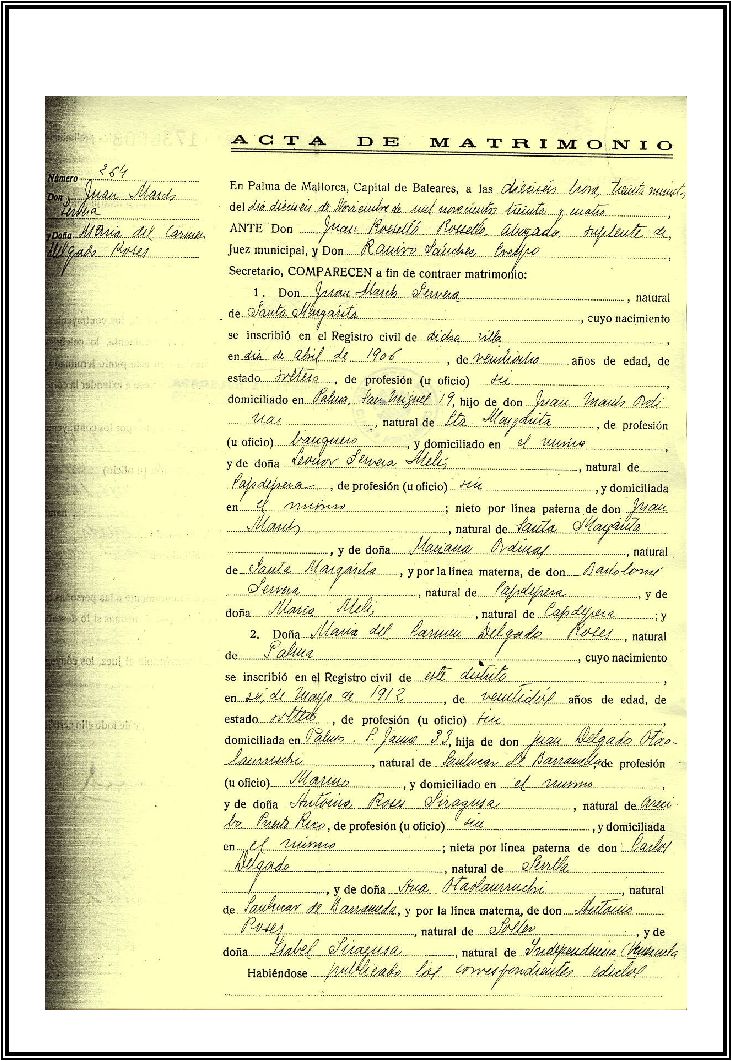 ACTA DE MATRIMONIO
Número 254
Don Juan March
Servera
y Doña María del Carmen
Delgado Roses
En Palma de Mallorca, Capital de Baleares, a las dieciseis horas, treinta minutos
del dia dieciseis de Noviembre de mil novecientos treinta y cuatro
ANTE Don Juan Rosselló Rosselló Abogado suplente de
Juez municipal, y Don Ramiro Sánchez Crespo
Secretario, COMPARECEN a fin de contraer matrimonio:
1. Don Juan March Servera, natural
de Santa Margarita, cuyo nacimiento
se inscribió en el Registro civil de dicha villa
en dia de abril de 1906, de veintiocho años de edad, de
estado soltero, de profesión (u oficio) sin
domiciliado en Palma, San Miguel 19, hijo de don Juan March Ordi
nas, natural de Sta Margarita, de profesión
(u oficio) banquero, y domiciliado en el mismo
y de doña Leonor Servera Melis, natural de
Capdepera, de profesión (u oficio) sin, y domiciliada
en el mismo; nieto por línea paterna de don Juan
March, natural de Santa Margarita
, y de doña Mariana Ordinas, natural
de Santa Margarita, y por la línea materna, de don Bartolomé
Servera, natural de Capdepera, y de
doña María Melis, natural de Capdepera; y
2. Doña María del Carmen Delgado Roses, natural
de Palma, cuyo nacimiento
se inscribió en el Registro civil de este distrito
en de Mayo de 1912, de veintidós años de edad, de
estado soltera, de profesión (u oficio) sin
domiciliada en Palma, P. Jaime 33, hija de don Juan Delgado Otao-
laurruchi, natural de Sanlucar de Barrameda de profesión
(u oficio) Marino, y domiciliado en el mismo
y de doña Antonia Roses Siragusa, natural de Areci
bo Puerto Rico, de profesión (u oficio) sin, y domiciliada
en el mismo; nieta por línea paterna de don Carlos
Delgado, natural de Sevilla
, y de doña Ana Otaolaurruchi, natural
de Sanlucar de Barrameda, y por la línea materna, de don Antonio
Roses, natural de Soller, y de
doña Isabel Siragusa, natural de Independencia (Venezuela
Habiéndose publicado los correspondientes edictos